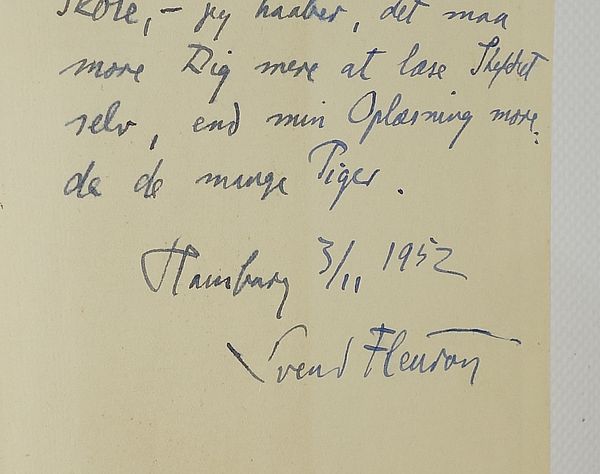 Skole, - jeg haaber, det maa
more Dig mere at læse Skriftet
selv, end min Oplæsning more-
de de mange Piger.
Hamburg 3/11 1952
Svend Fleuron